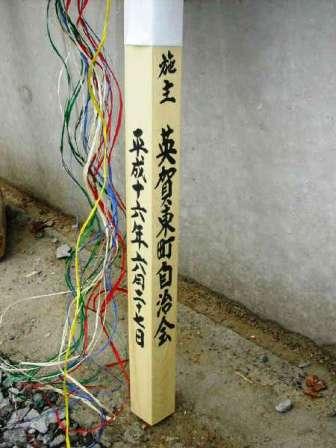 施主 英賀東町自治会
平成十六年六月二十七日